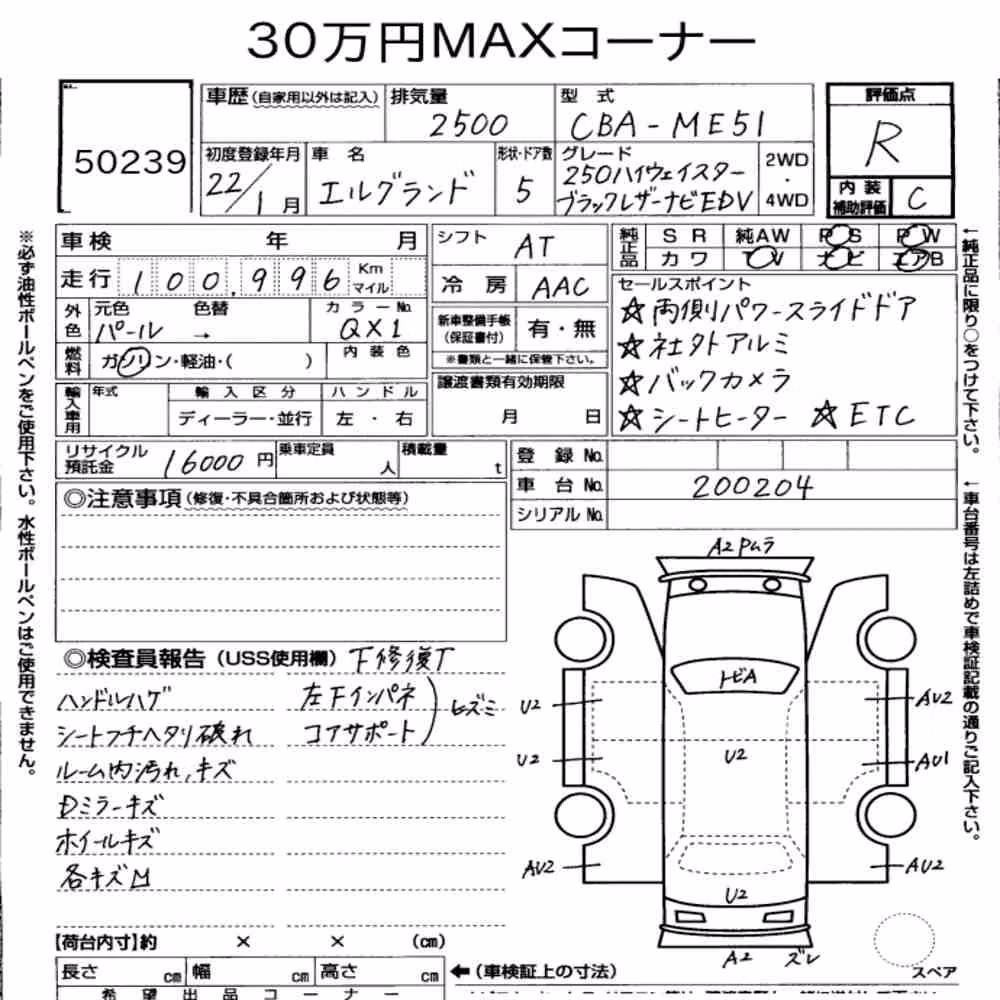 30万円MAXコーナー
50239
車歴(自家用以外は記入)
排気量
2500
型 式
CBA-ME51
評価点
R
内装
補助評価
C
初度登録年月
22/1月
車 名
エルグランド
形状・ドア数
5
グレード
250ハイウェイスター
ブラックレザーナビEDV
2WD
・
4WD
車検 年 月
走行 100,996 Km
マイル
シフト AT
冷房 AAC
純正品
SR 純AW PS PW
カワ TV ナビ エアB
外色
元色 色替
パール →
カラーNo.
QX1
燃料
ガソリン・軽油・( )
内装色
新車整備手帳
(保証書付)
有・無
※書類と一緒に保管下さい。
セールスポイント
☆両側パワースライドドア
☆社外アルミ
☆バックカメラ
☆シートヒーター ☆ETC
輸入車用
年式
輸入区分
ディーラー・並行
ハンドル
左・右
譲渡書類有効期限
月 日
リサイクル
預託金
16000円
乗車定員
人
積載量
t
登録No.
車台No. 200204
シリアルNo.
◎注意事項(修復・不具合箇所および状態等)
◎検査員報告(USS使用欄) 下修復T
ハンドルハゲ
シートフチヘタリ破れ
ルーム内汚れ,キズ
Dミラーキズ
ホイールキズ
各キズM
左Fインパネ
コアサポート
ヒズミ
A2 Pムラ
トビA
U2
U2
U2
AU2
AU2
AU1
AU2
U2
A2 ズレ
スペア
【荷台内寸】約 × × (cm)
長さ cm 幅 cm 高さ cm
←(車検証上の寸法)
希望出品コーナー
※必ず油性ボールペンをご使用下さい。水性ボールペンはご使用できません。
←純正品に限り○をつけて下さい。
←車台番号は左詰めで車検証記載の通りご記入下さい。